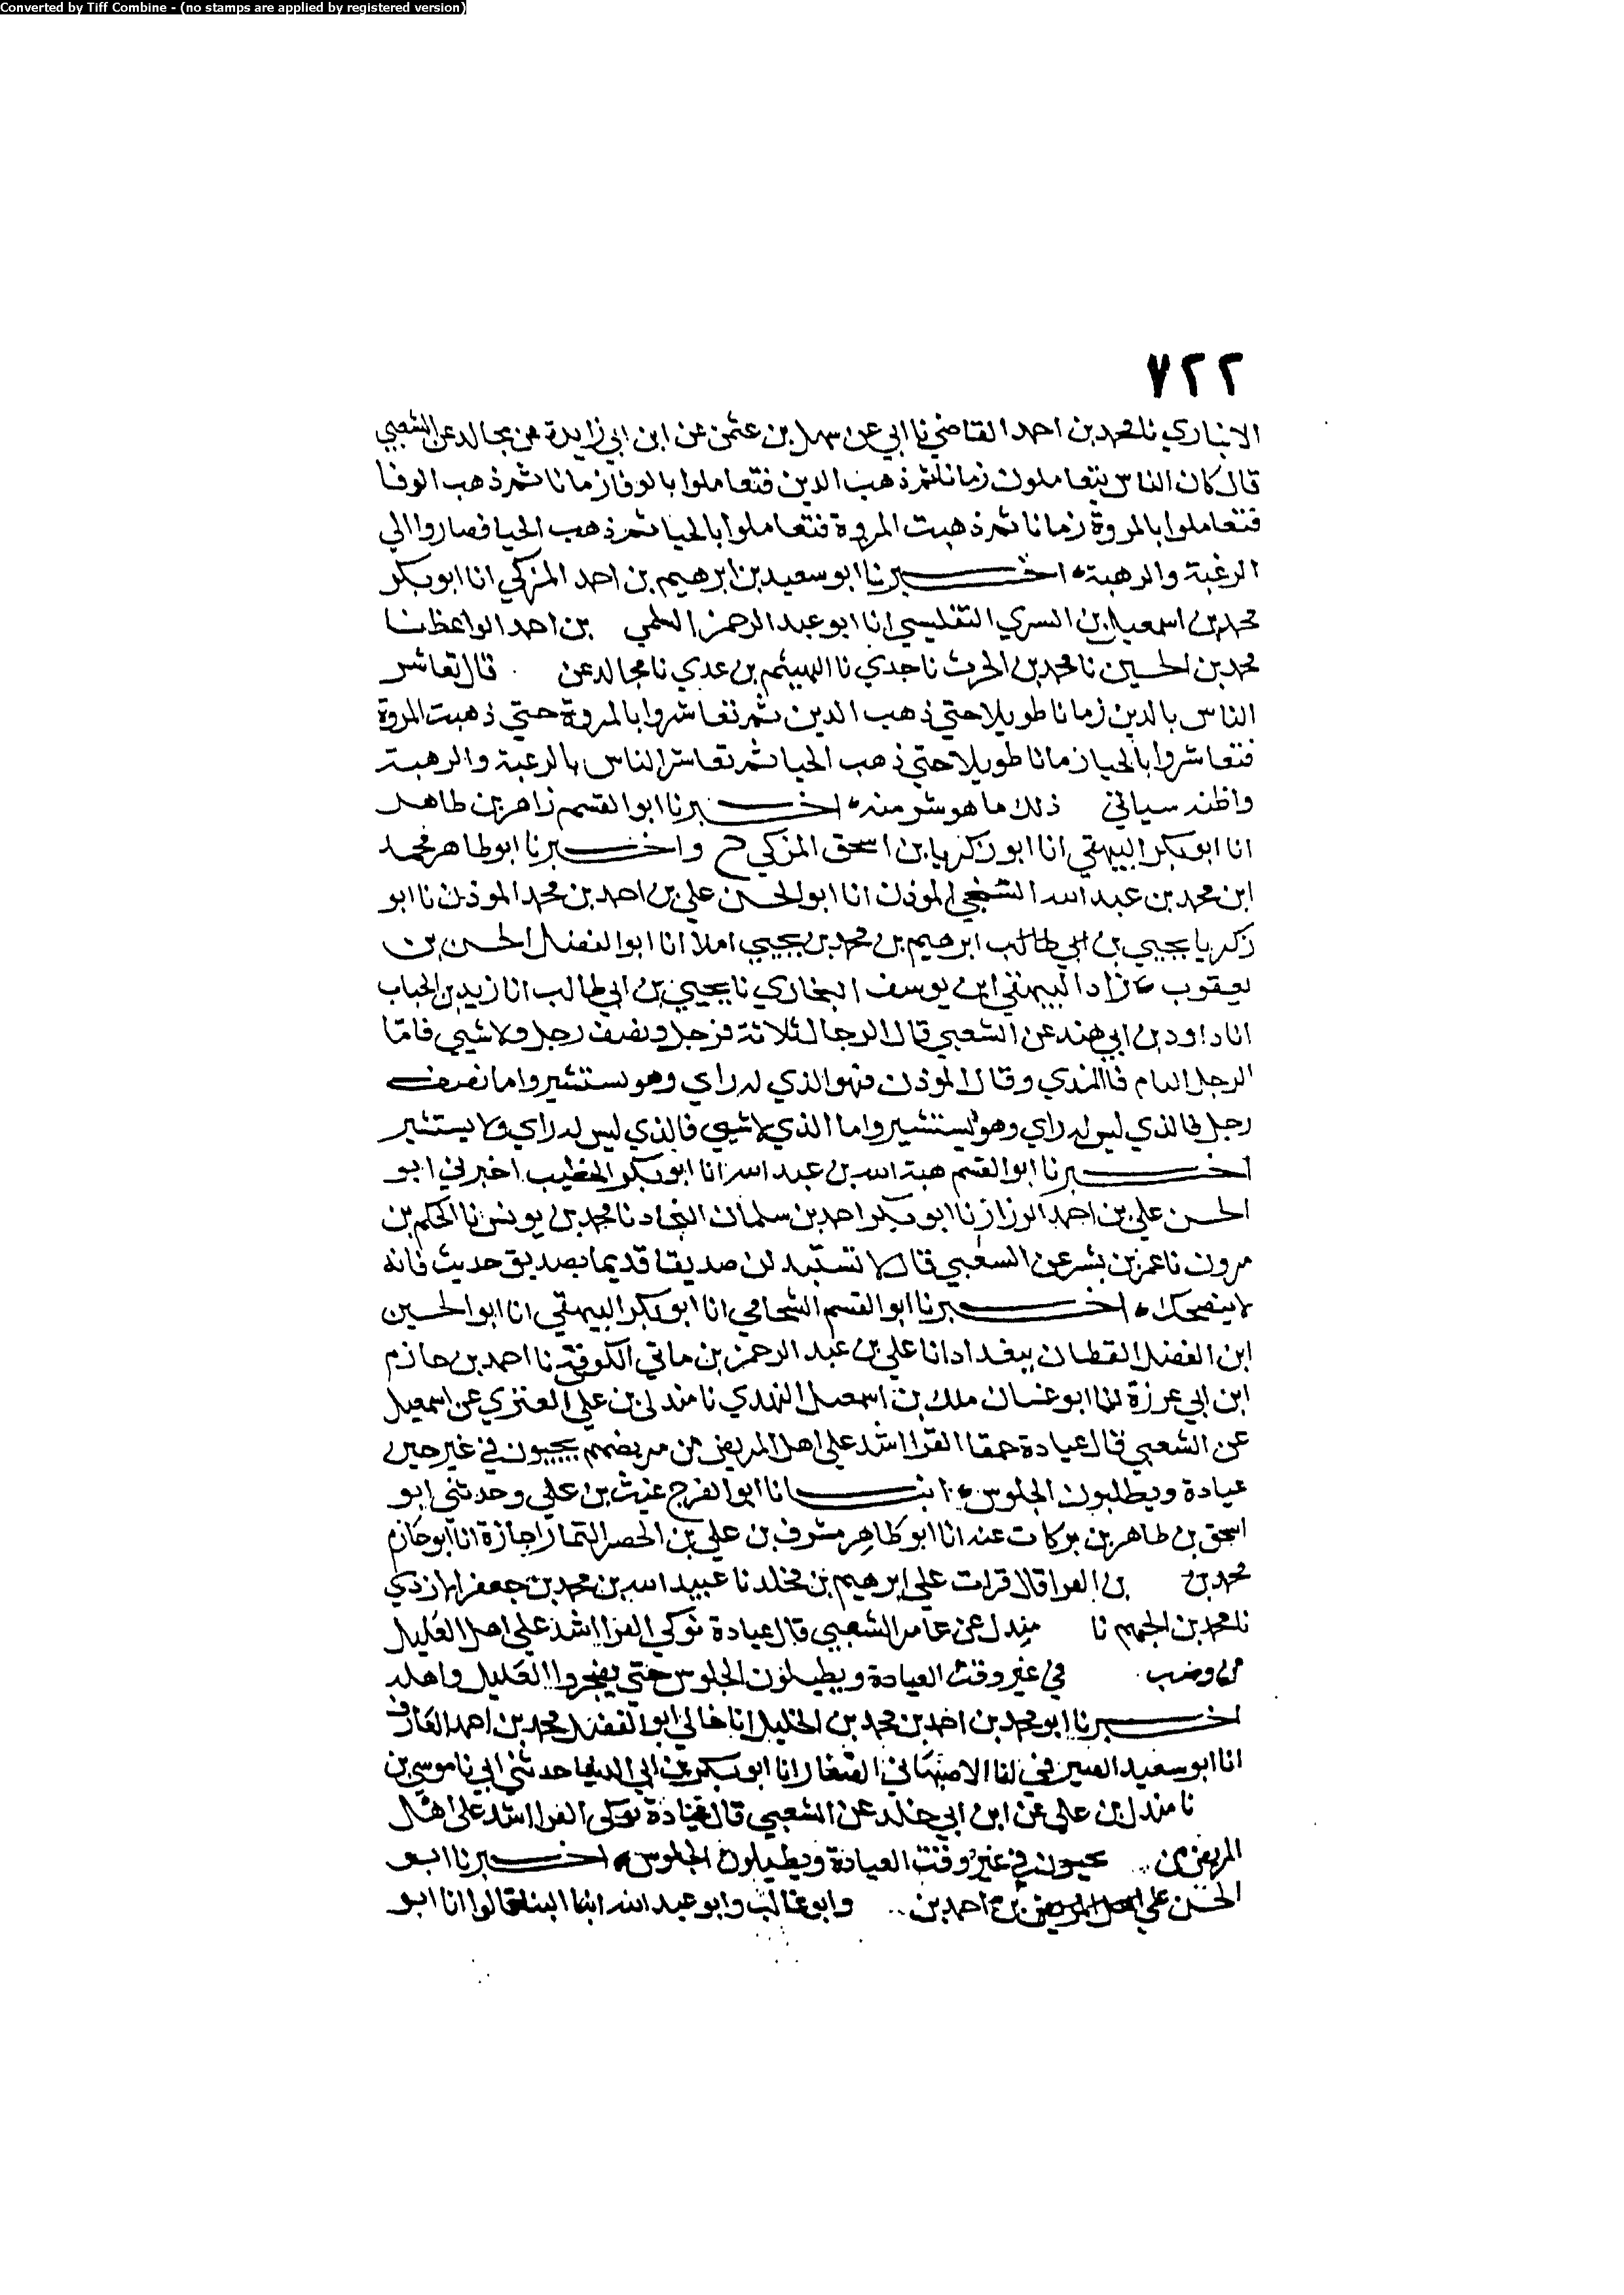 Converted by Tiff Combine - (no stamps are applied by registered version)
٧٢٢
الانباري نا محمد بن احمد القاضي نا ابي عن سهل بن عثمن عن ابن ابي زايدة عن مجالد عن الشعبي
قال كان الناس يتعاملون زمانا ثم ذهب الدين فتعاملوا بالوفا زمانا ثم ذهب الوفا
فتعاملوا بالمروة زمانا ثم ذهبت المروة فتعاملوا بالحيا ثم ذهب الحيا فصاروا الي
الرغبة والرهبة اخبرنا ابو سعيد بن ابرهيم بن احمد المزكي انا ابو بكر
محمد بن اسمعيل بن السري التفليسي انا ابو عبد الرحمن السلمي بن احمد الواعظ نا
محمد بن الحسين نا محمد بن الحرث نا جدي نا الهيثم بن عدي نا مجالد عن قال تعاشر
الناس بالدين زمانا طويلا حتي ذهب الدين ثم تعاشروا بالمروة حتي ذهبت المروة
فتعاشروا بالحيا زمانا طويلا حتي ذهب الحيا ثم تعاشر الناس بالرغبة والرهبة
واظنه سياتي ذلك ما هو شر منه اخبرنا ابو القسم زاهر بن طاهر
انا ابو بكر البيهقي انا ابو زكريا بن اسحق المزكي ح واخبرنا ابو طاهر محمد
ابن محمد بن عبد الله السنجي المؤذن انا ابو الحسن علي بن احمد بن محمد الموذن نا ابو
زكريا يحيي بن ابي طالب ابرهيم بن محمد بن يحيي املا انا ابو الفضل الحسن بن
يعقوب زاد البيهقي ابن يوسف البخاري نا يحيي بن ابي طالب انا زيد بن الحباب
انا داود بن ابي هند عن الشعبي قال الرجال ثلاثة فرجل ونصف رجل ولا شيي فامّا
الرجل التام فالذي وقال الموذن فهو الذي له راي وهو يستشير واما نصف
رجل فالذي ليس له راي وهو يستشير واما الذي لا شيي فالذي ليس له راي ولا يستشير
اخبرنا ابو القسم هبة الله بن عبد الله انا ابو بكر الخطيب اخبرني ابو
الحسن علي بن احمد الرزاز نا ابو بكر احمد بن سلمان النجاد نا محمد بن يونس نا الحكم بن
مرون نا عمر بن بشر عن الشعبي قال لا تستبدلن صديقا قديما بصديق حديث فانه
لا ينصحك اخبرنا ابو القسم الشحامي انا ابو بكر البيهقي انا ابو الحسين
ابن الفضل القطان ببغداد انا علي بن عبد الرحمن بن ماتي الكوفي نا احمد بن حازم
ابن ابي غرزة نا ابو غسان ملك بن اسمعيل النهدي نا مندل بن علي العنزي عن اسمعيل
عن الشعبي قال عيادة حمقا القرا اشد علي اهل المريض من مريضهم يجيبون في غير حين
عيادة ويطلبون الجلوس انبانا ابو الفرج غيث بن علي وحدثني ابو
اسحق بن طاهر بن بركات عنه انا ابو طاهر مشرف بن علي بن الخضر التمار اجازة انا ابو خازم
محمد بن بن الفرا قال قرات علي ابرهيم بن مخلد نا عبيد الله بن محمد بن جعفر الازدي
نا محمد بن الجهم نا مندل عن عامر الشعبي قال عيادة نوكي القرا اشد علي اهل العليل
من وصب في غير وقت العيادة ويطيلون الجلوس حتي يضجروا العليل واهله
اخبرنا ابو محمد بن احمد بن محمد بن الخليل انا خالي ابو الفضل محمد بن احمد العارف
انا ابو سعيد الصيرفي انا الاصبهاني الصفار انا ابو بكر بن ابي الدنيا حدثني ابي نا موسي بن
نا مندل بن علي عن ابن ابي خالد عن الشعبي قال عيادة نوكي القرا اشد علي اهل
المريض من في غير وقت العيادة ويطيلون الجلوس اخبرنا ابو
الحسن علي بن احمد بن وابو غالب وابو عبد الله ابنا البنا قالوا انا ابو